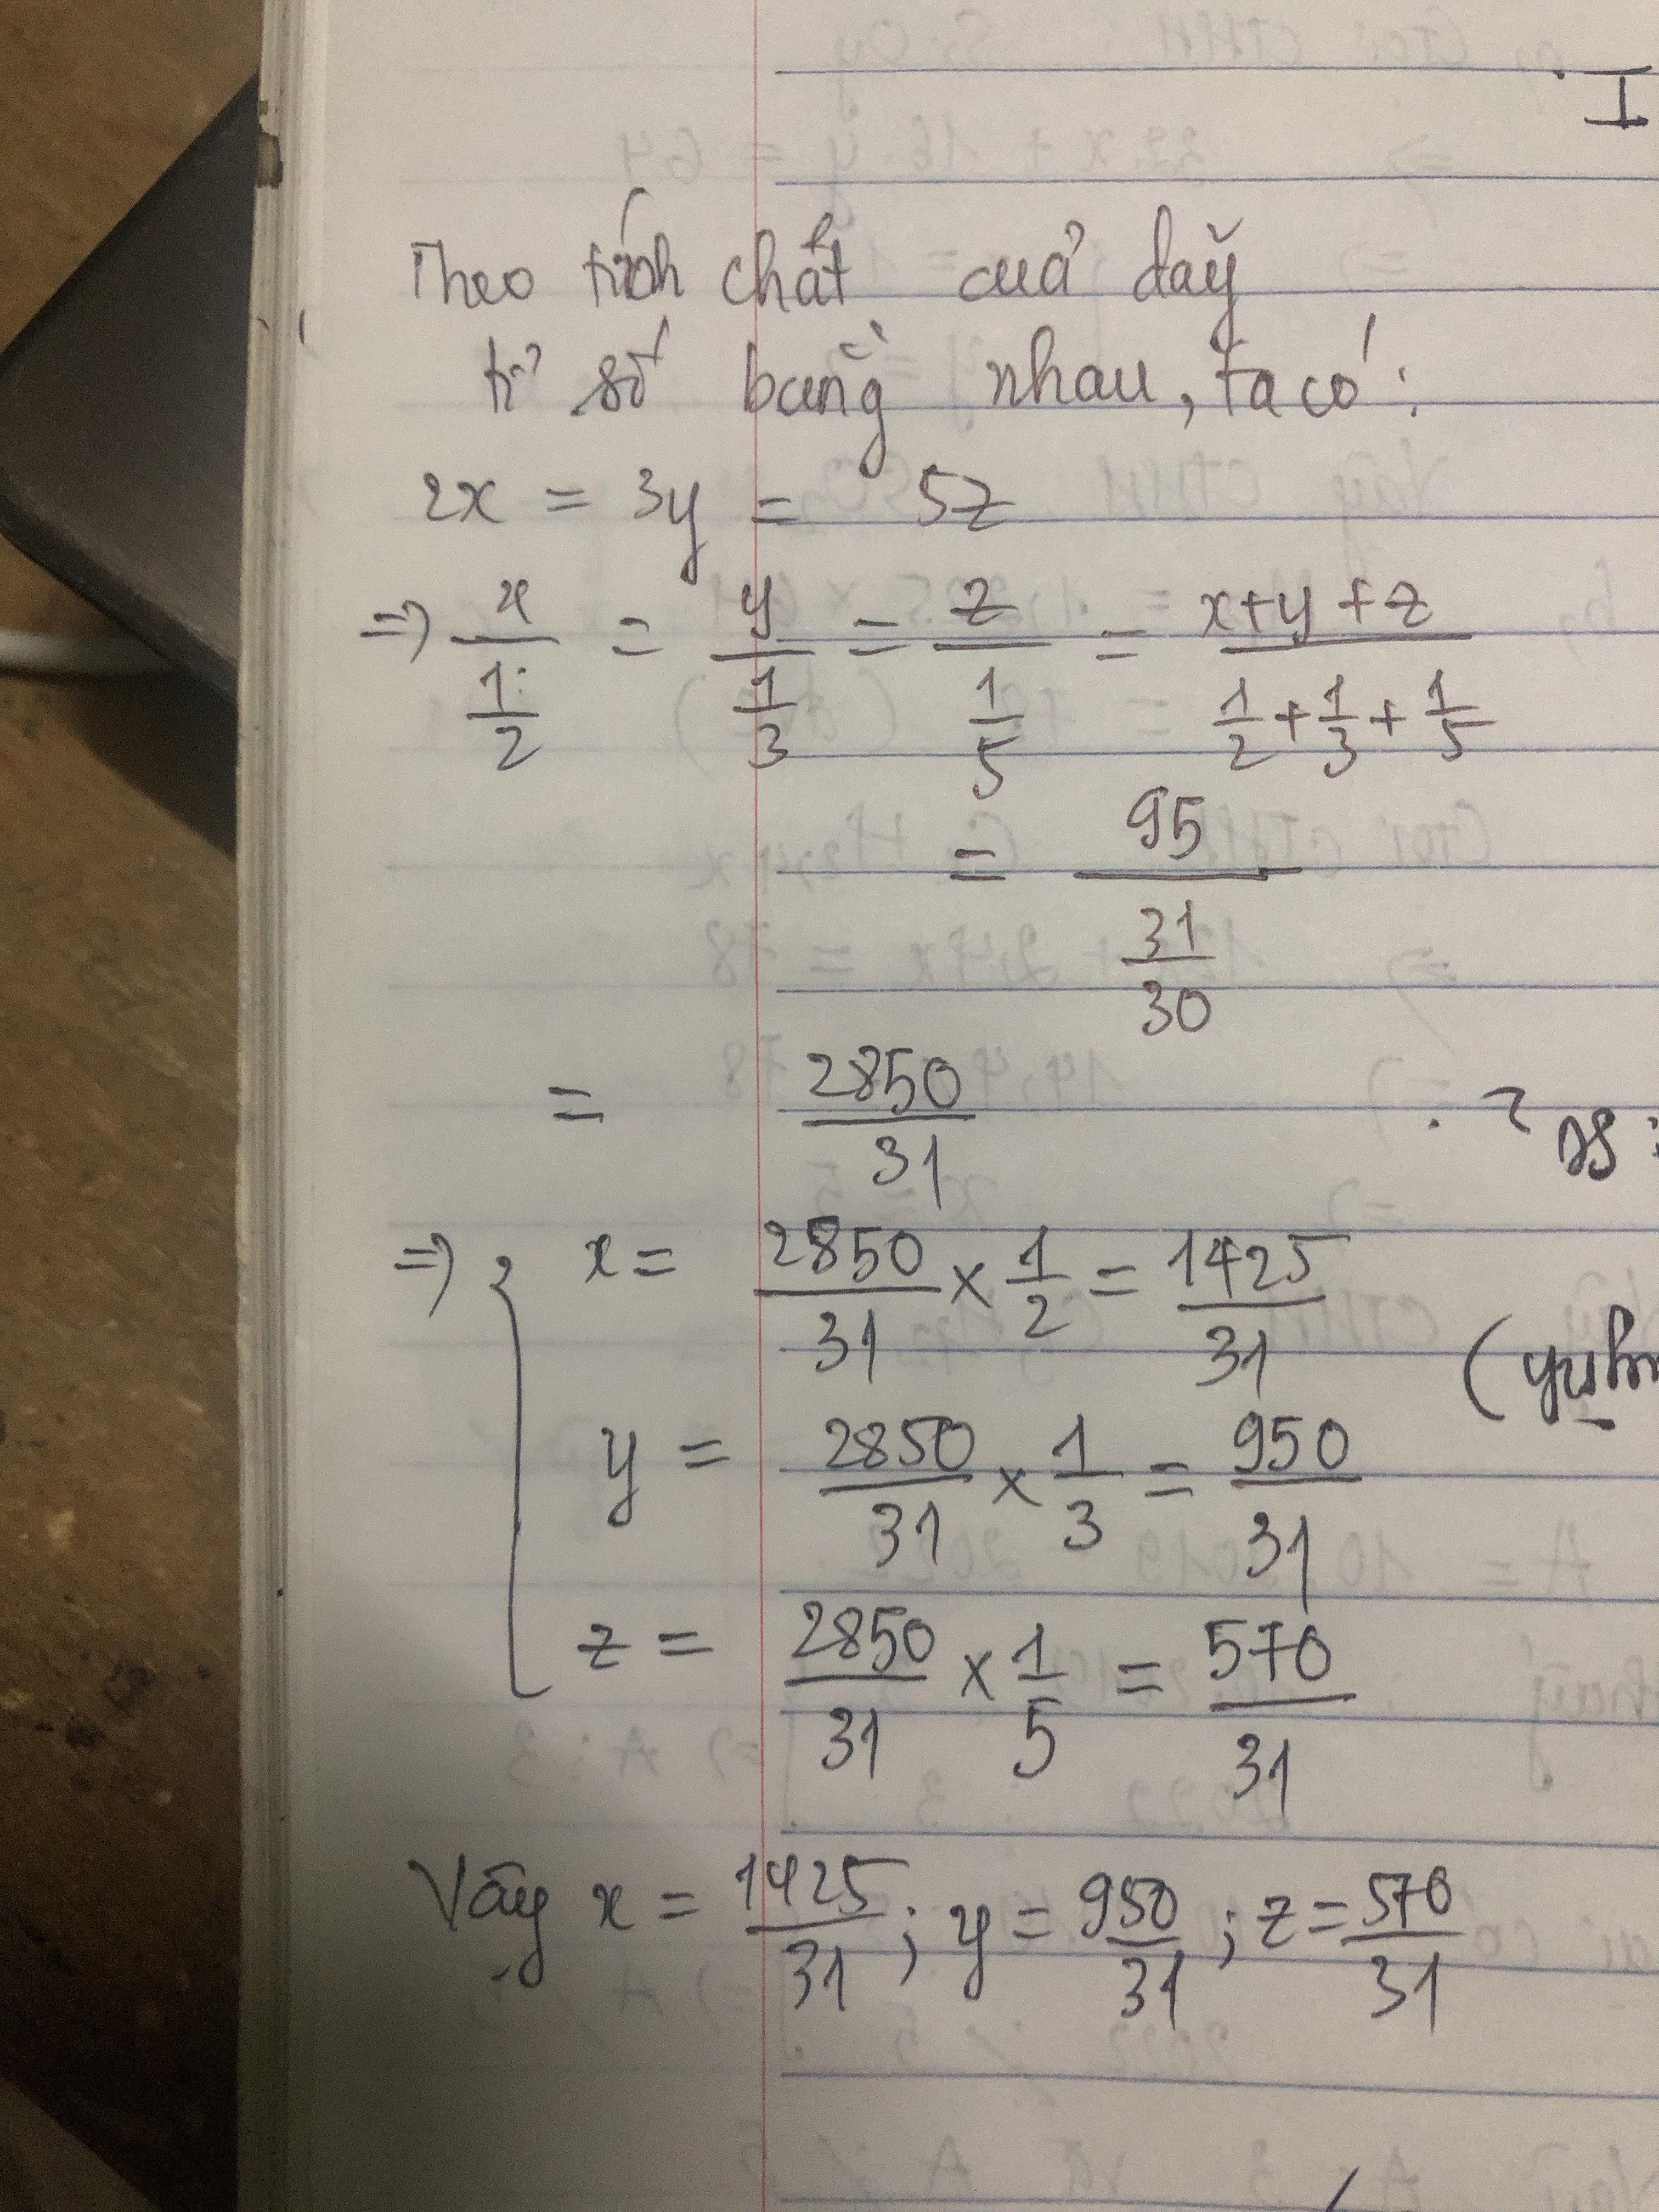 I
Theo tính chất của dãy
tỉ số bằng nhau, ta có:
2x = 3y = 5z
=> x/(1/2) = y/(1/3) = z/(1/5) = (x+y+z)/(1/2+1/3+1/5)
= 95/(31/30)
= 2850/31
=> { x = 2850/31 × 1/2 = 1425/31
y = 2850/31 × 1/3 = 950/31
z = 2850/31 × 1/5 = 570/31
Vậy x = 1425/31; y = 950/31; z = 570/31